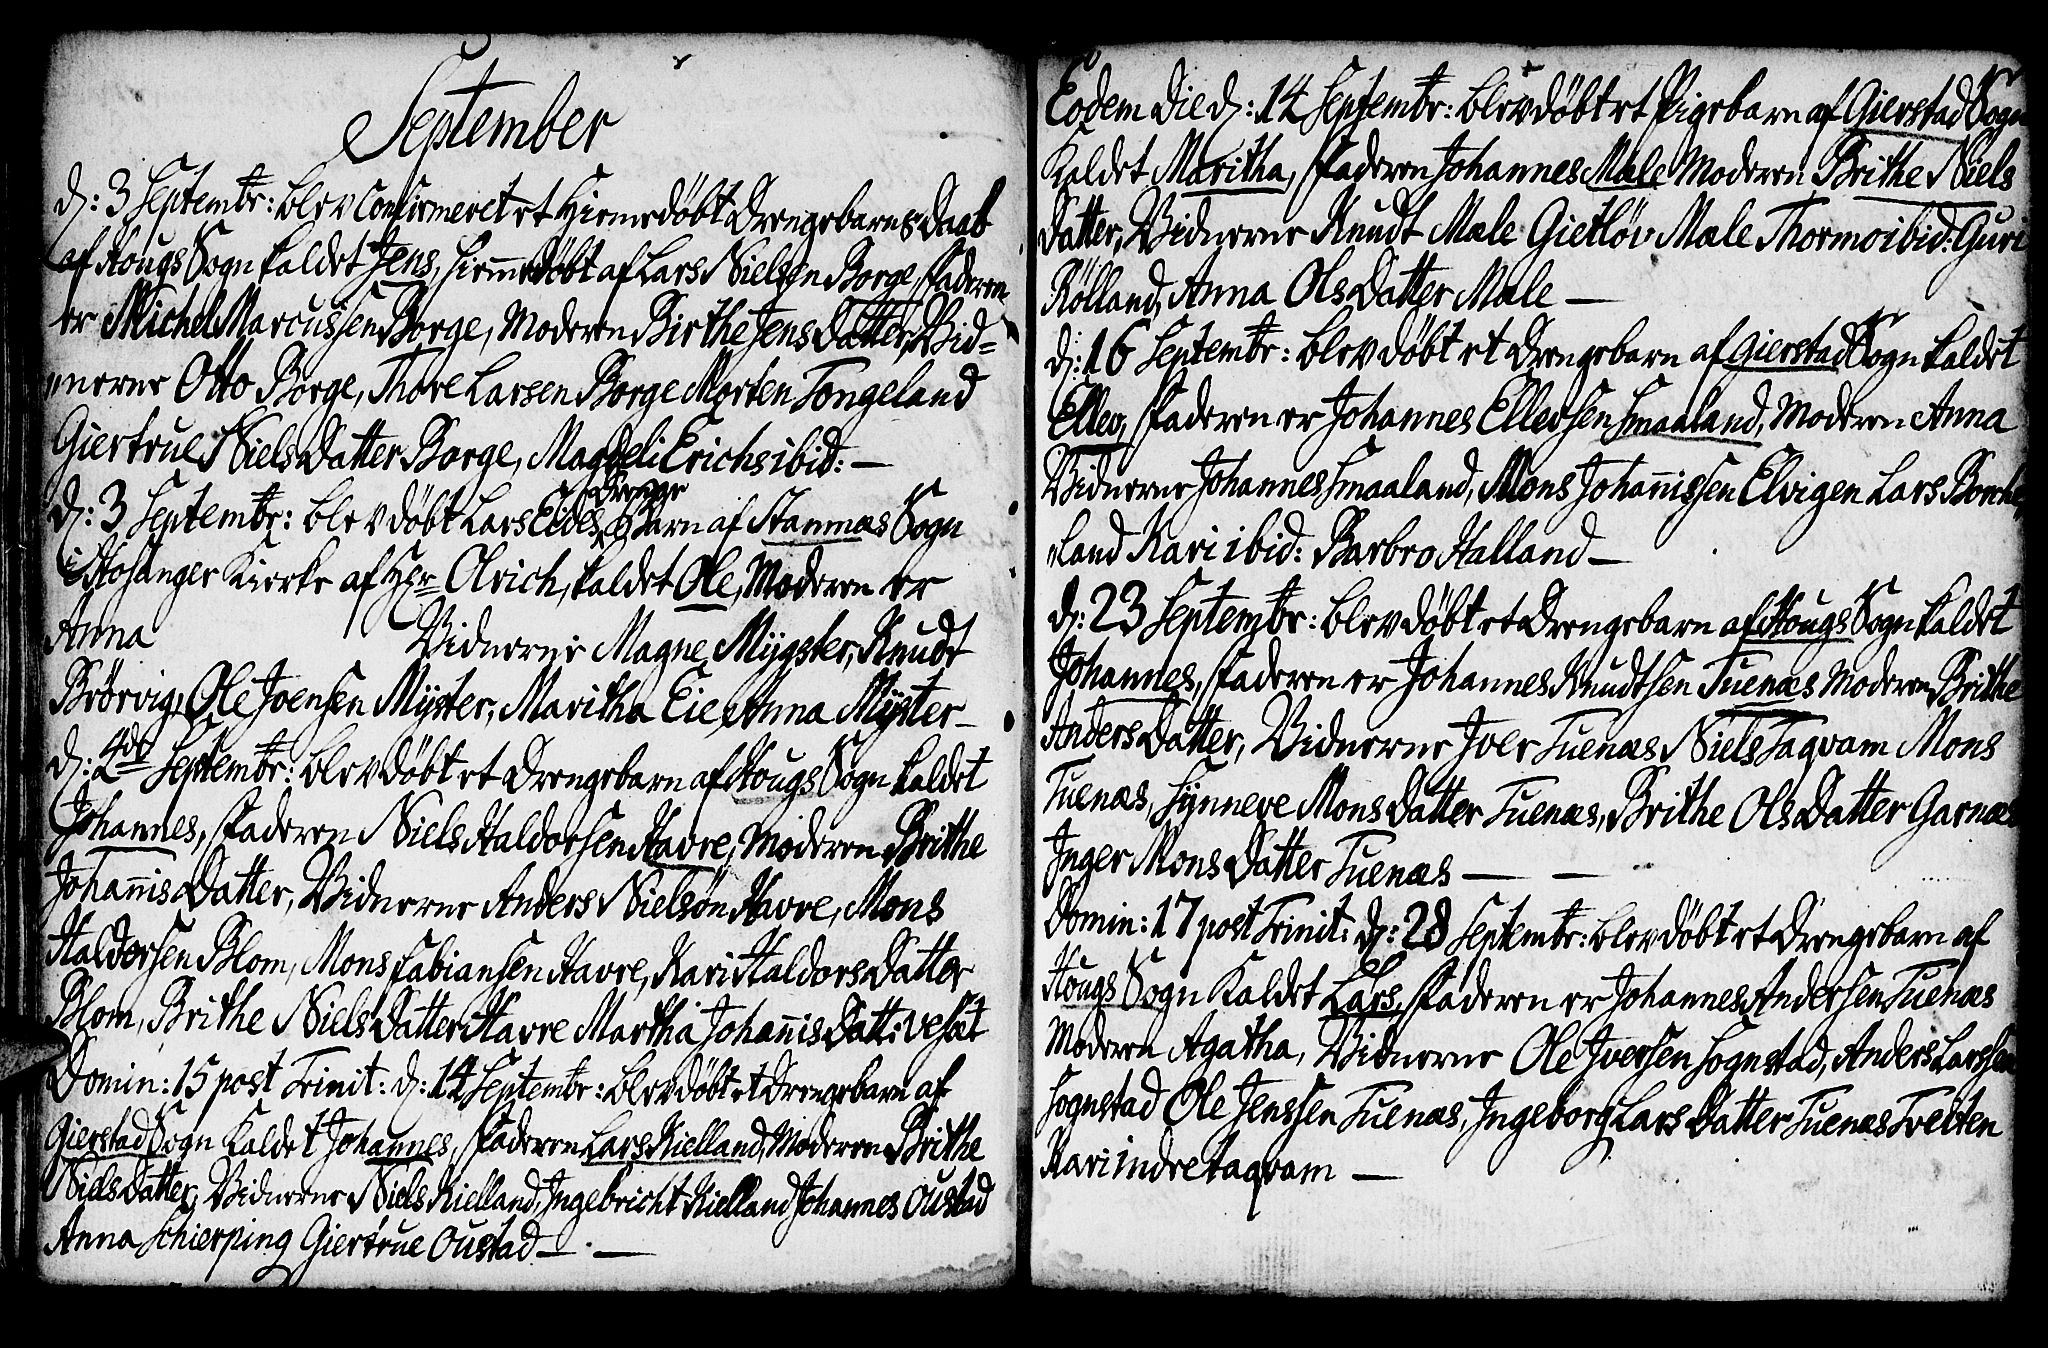 September
d: 3 Septembr: blev Confirmeret et Hiemedøbt Drengebarns Daab
af Hougs Sogn kaldet Jens, hiemedøbt af Lars Nielsen Borge, Faderen
er Michel Marcussen Borge, Moderen Birthe Jens Datter, Vid=
nerne Otto Borge, Thore Larsen Borge Morten Tongeland
Giertrue Niels Datter Borge, Magdeli Erichs ibid: —
d: 3 Septembr: blev døbt Lars Eides Drenge Barn af Stamnæs Sogn
i Hosanger Kierke af Hr Olrich, kaldet Ole, Moderen er
Anna Vidnerne Magne Mygster, Knudt
Brørvig, Ole Joensen Myster, Maritha Eie, Anna Myster —
d: 4de Septembr: blev døbt et Drengebarn af Hougs Sogn kaldet
Johannes, Faderen Niels Haldorsen Havre, Moderen Brithe
Johannis Datter, Vidnerne Anders Nielsøn Havre, Mons
Haldorsen Blom, Mons Fabiansen Havre, Kari Haldors Datter
Blom, Brithe Niels Datter Havre Martha Johannis Datt: Vesæt
Domin: 15 post Trinit: d: 14 Septembr: blev døbt et Drengebarn af
Gierstad Sogn Kaldet Johannes, Faderen Lars Kielland, Moderen Brithe
Niels Datter, Vidnerne Niels Kielland, Ingebricht Kielland Johannes Oustad
Anna Schierping Giertrue Oustad — . —
Eodem Die d: 14 Septembr: blev døbt et Pigebarn af Gierstad Sogn
Kaldet Maritha, Faderen Johannes Mæle Moderen Brithe Niels
Datter, Vidnerne Knudt Mæle Gietløv Mæle Thormo ibid: Guri
Rølland, Anna Ols Datter Mæle —
d: 16 Septembr: blev døbt et Drengebarn af Gierstad Sogn kaldet
Ellev, Faderen er Johannes Ellevsen Smaaland, Moderen Anna
Vidnerne Johannes Smaaland, Mons Johannissen Elvigen Lars Borche
land Kari ibid: Barbro Halland —
d: 23 Septembr: blev døbt et Drengebarn af Hougs Sogn kaldet
Johannes, Faderen er Johannes Knudtsen Tuenæs Moderen Brithe
Anders Datter, Vidnerne Iver Tuenæs Niels Taqvam Mons
Tuenæs, Synneve Mons Datter Tuenæs, Brithe Ols Datter Garnæs
Inger Mons Datter Tuenæs — —
Domin: 17 post Trinit: d: 28 Septembr: blev døbt et Drengebarn af
Hougs Sogn Kaldet Lars, Faderen er Johannes Andersen Tuenæs
Moderen Agatha, Vidnerne Ole Iversen Sognstad, Anders Larssen
Sognstad Ole Jenssen Tuenæs, Ingeborg Lars Datter Tuenæs Tvelten
Kari indre taqvam —